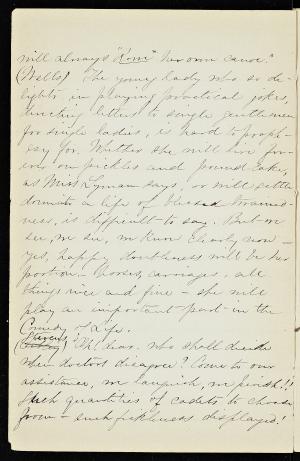 will always "Row" her own canoe."
(Wells) The young lady who so de-
lights in playing practical jokes,
sending letters to single gentlemen
for single ladies, is hard to proph-
esy for. Whether she will live for-
ever on pickles and pound cake,
as Miss Lyman says, or will settle
down to a life of blessed
ness, is difficult to say. But we
see, we see, we know clearly, now -
yes, happy doubleness will be her
portion. Horses, carriages, all
things nice and fine - she will
play an important part in the
Comedy of Life.
(Stevens) "Oh! dear. who shall decide
when doctors disagree? Come to our
assistance, we languish, we perish!!
Such quantities of cadets to choose
from - such fickleness displayed!